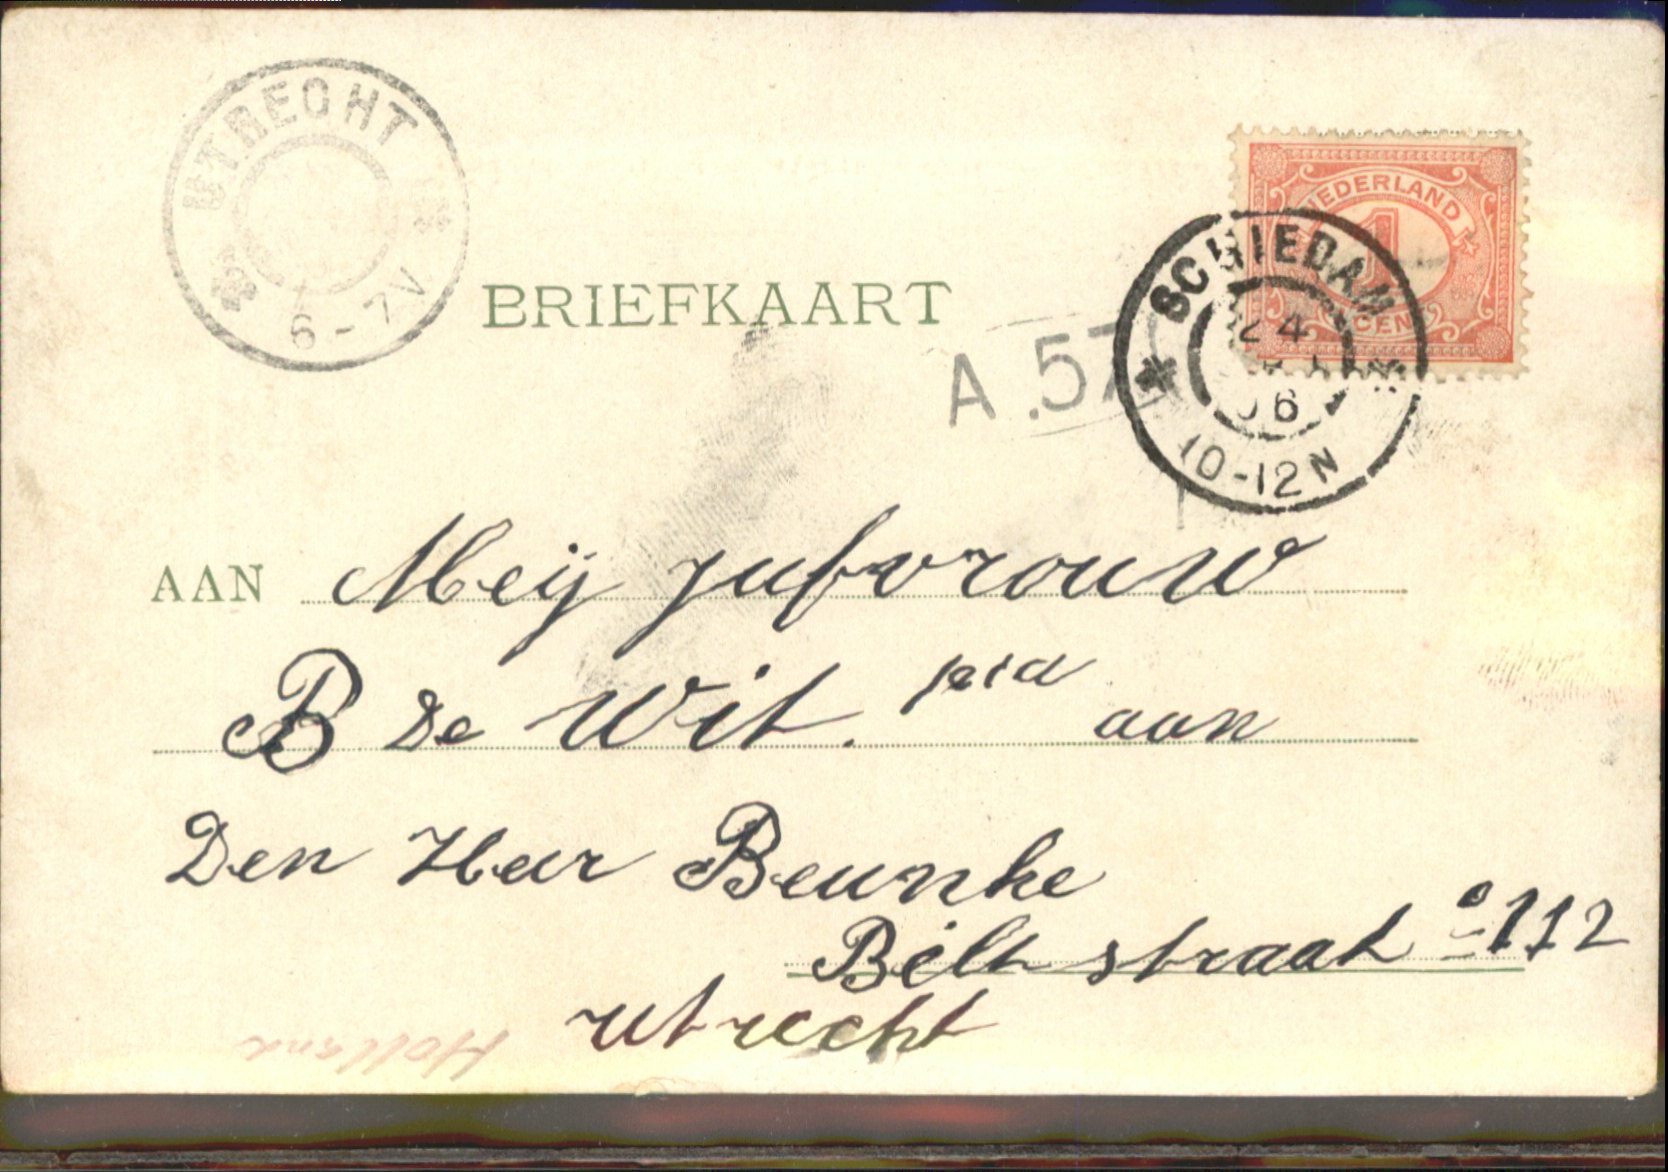 UTRECHT
6-7V
NEDERLAND
1
CENT
SCHIEDAM
24
06
10-12N
BRIEFKAART
A.57
AAN Meij jufvrouw
B De Wit. aan
Den Heer Beunke
Bilt straat 112
utrecht
Holland